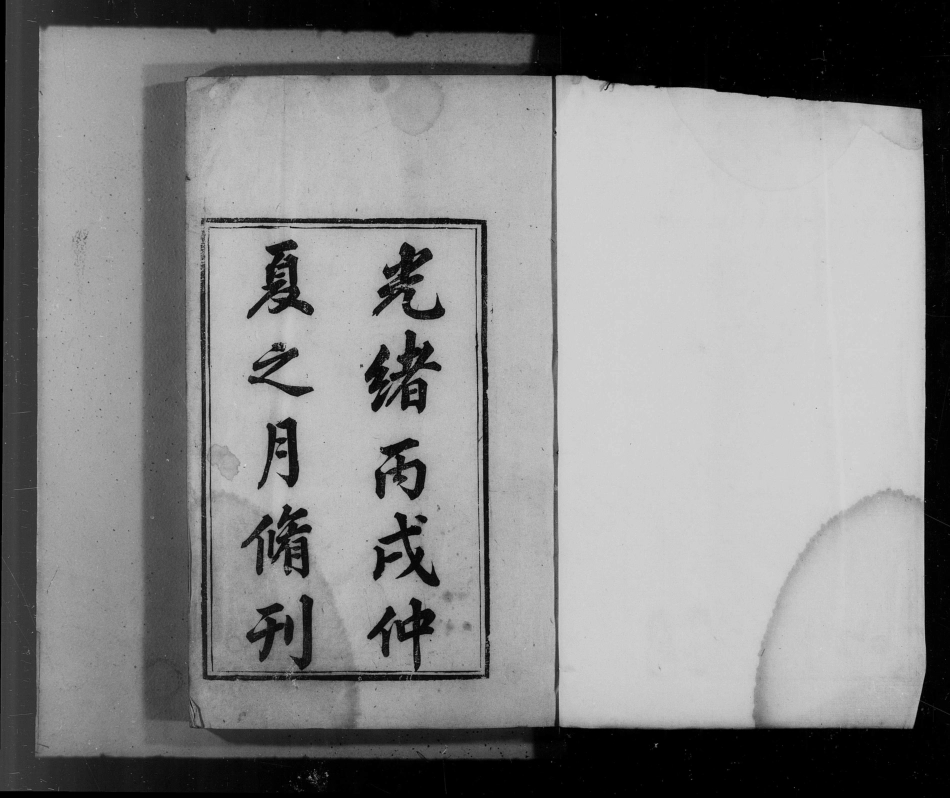 光緒丙戌仲
夏之月脩刊